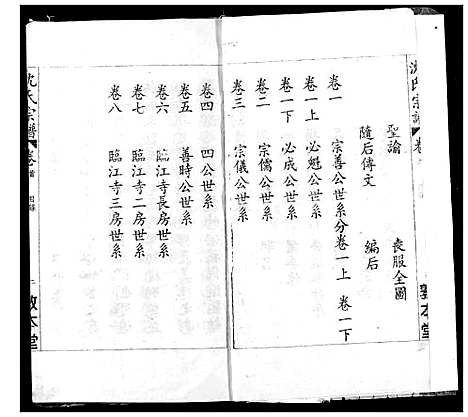 沈氏宗譜
卷
聖諭　喪服全圖
隨后傳文　編后
卷一　宗善公世系分卷一上　卷一下
卷一上　必魁公世系
卷一下　必成公世系
卷二　宗儒公世系
卷三　宗儀公世系
敦本堂
卷四　四公世系
卷五　善時公世系
卷六　臨江寺長房世系
卷七　臨江寺二房世系
卷八　臨江寺三房世系
沈氏宗譜
卷首　目錄
二
敦本堂